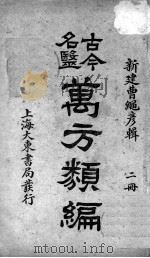 新建曹繩彥輯 二冊
古今
名醫
萬方類編
上海大東書局發行